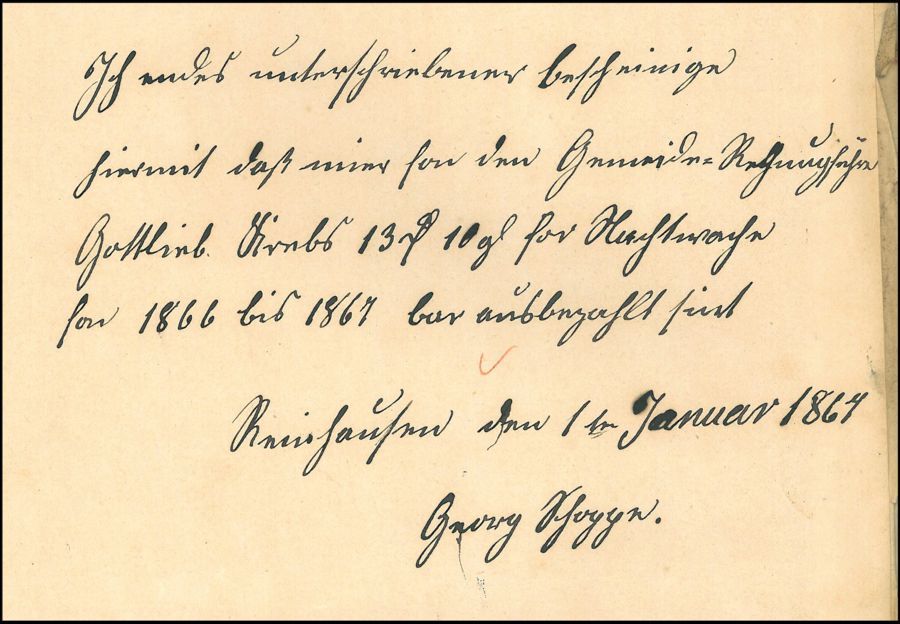 Ich endes unterschriebener bescheinige
hiermit daß mier fon den Gemeide-Rechnugsführe
Gottlieb Krebs 13 10 for Nachtwache
fon 1866 bis 1867 bar ausbezahlt sint
Reinhausen den 1 ten Januar 1867
Georg Schoppe.